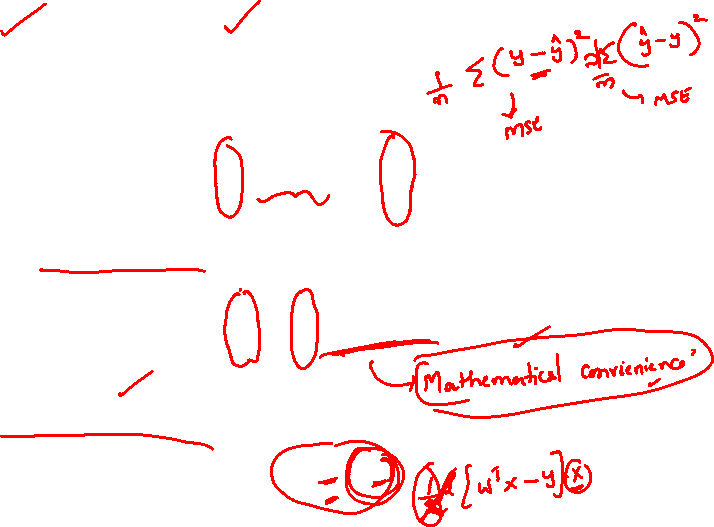 1/m Σ(y - ŷ)² 1/m Σ(ŷ - y)²
MSE
MSE
Mathematical convienience
[wᵀx - y] x